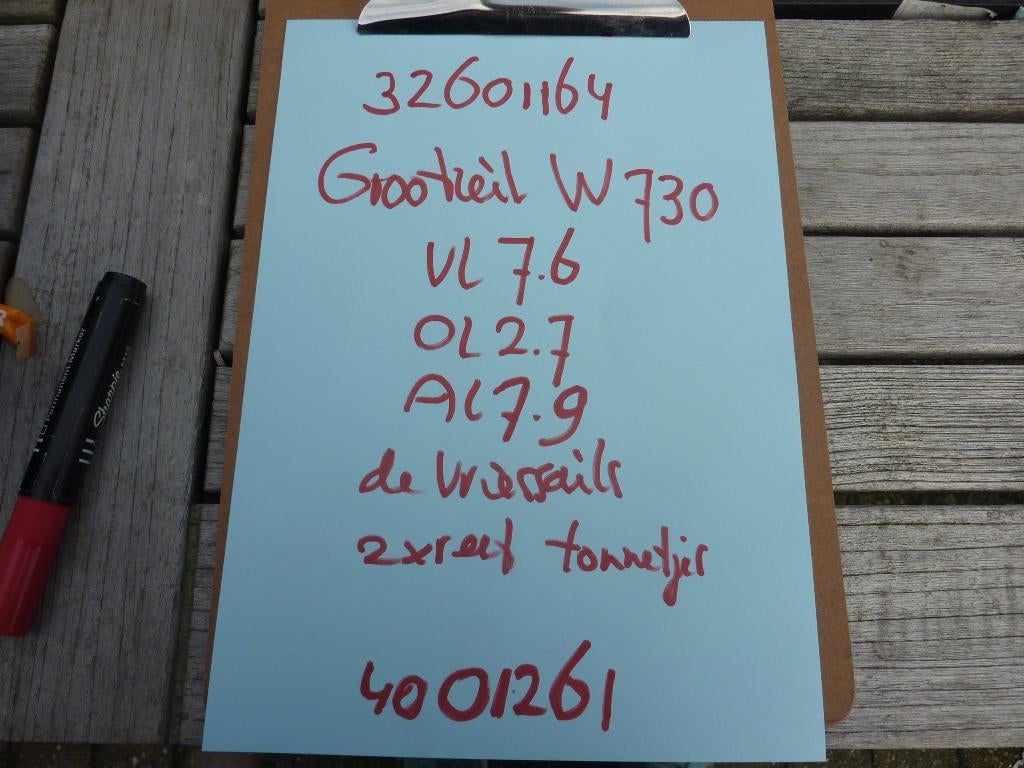 32601164
Grootzeil W 730
VL 7.6
OL 2.7
AL 7.9
de Vriessails
2x reef tonnetjes
4001261
Permanent Marker
Sharpie